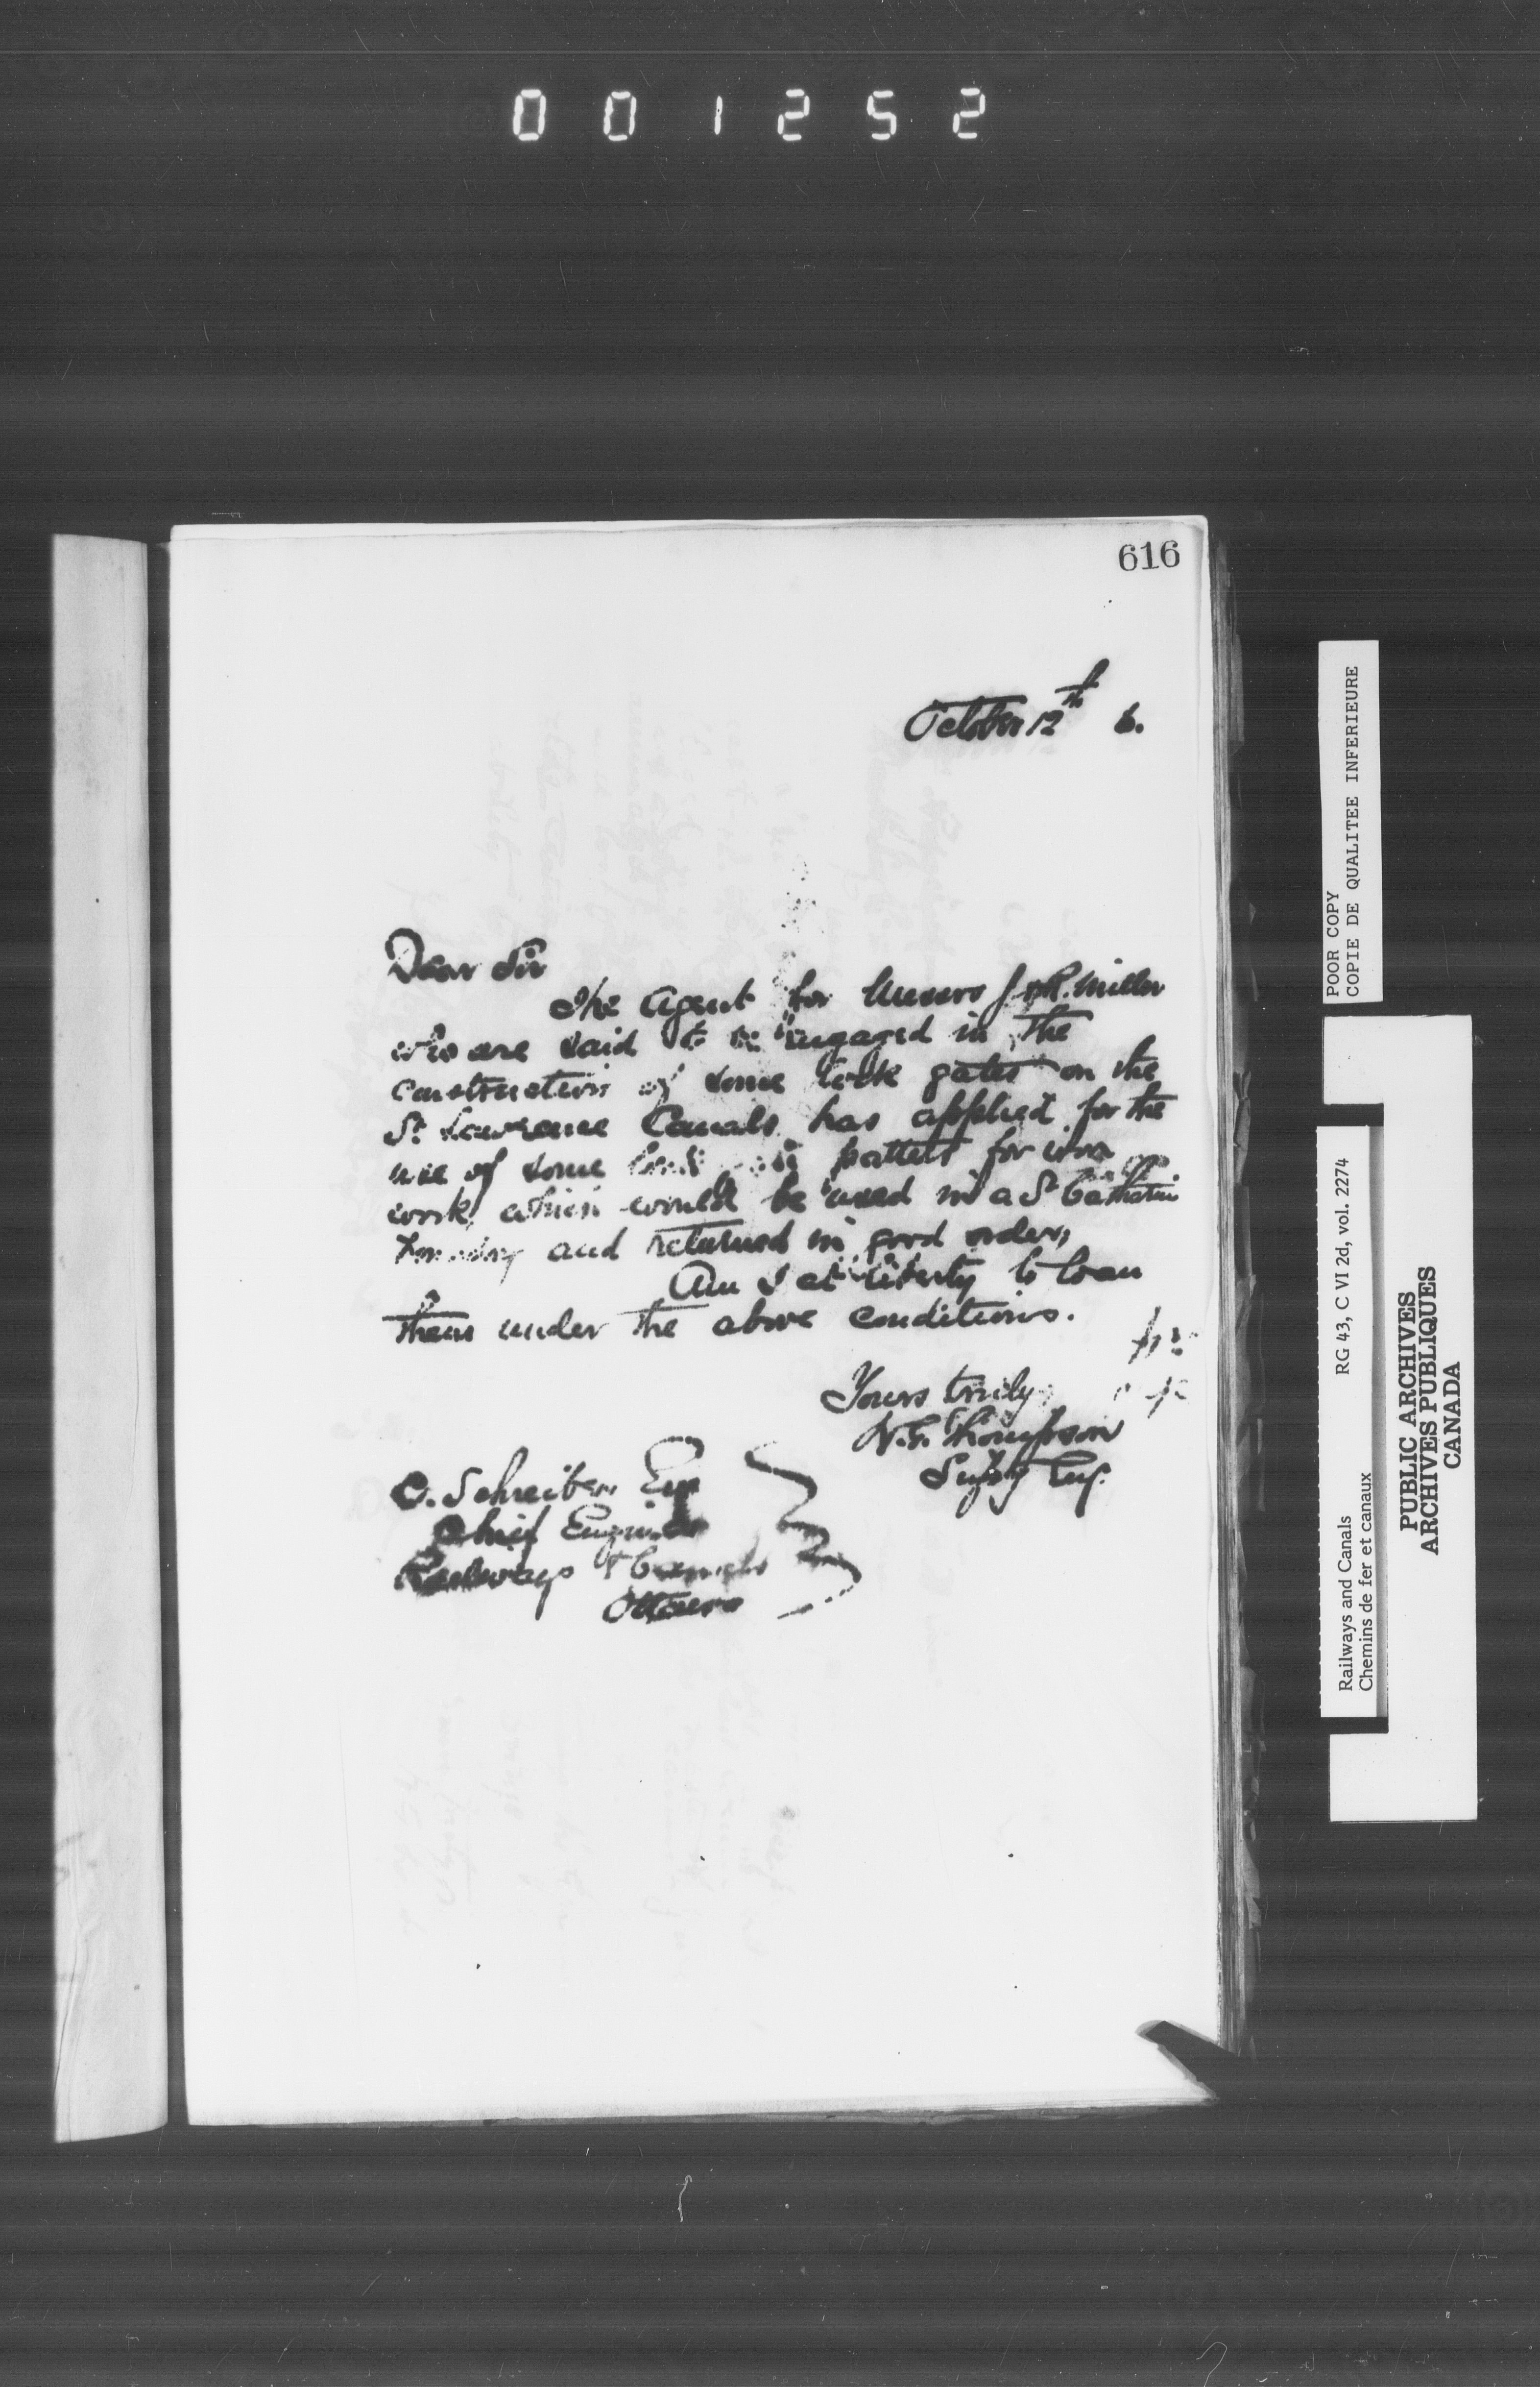 001252
616
October 12th 6.
Dear Sir
The Agent for Messrs J & R. Miller
who are said to be engaged in the
construction of some lock gates on the
St Lawrence Canals has applied for the
use of some patterns for iron
work which would be used in a St Catharines
and returned in good order,
Am I at liberty to loan
them under the above conditions.
Yours truly
W.G. Thompson
Supg Eng.
C. Schreiber Esq
Chief Engineer
Railways & Canals
Ottawa
POOR COPY
COPIE DE QUALITEE INFERIEURE
Railways and Canals RG 43, C VI 2d, vol. 2274
Chemins de fer et canaux
PUBLIC ARCHIVES
ARCHIVES PUBLIQUES
CANADA